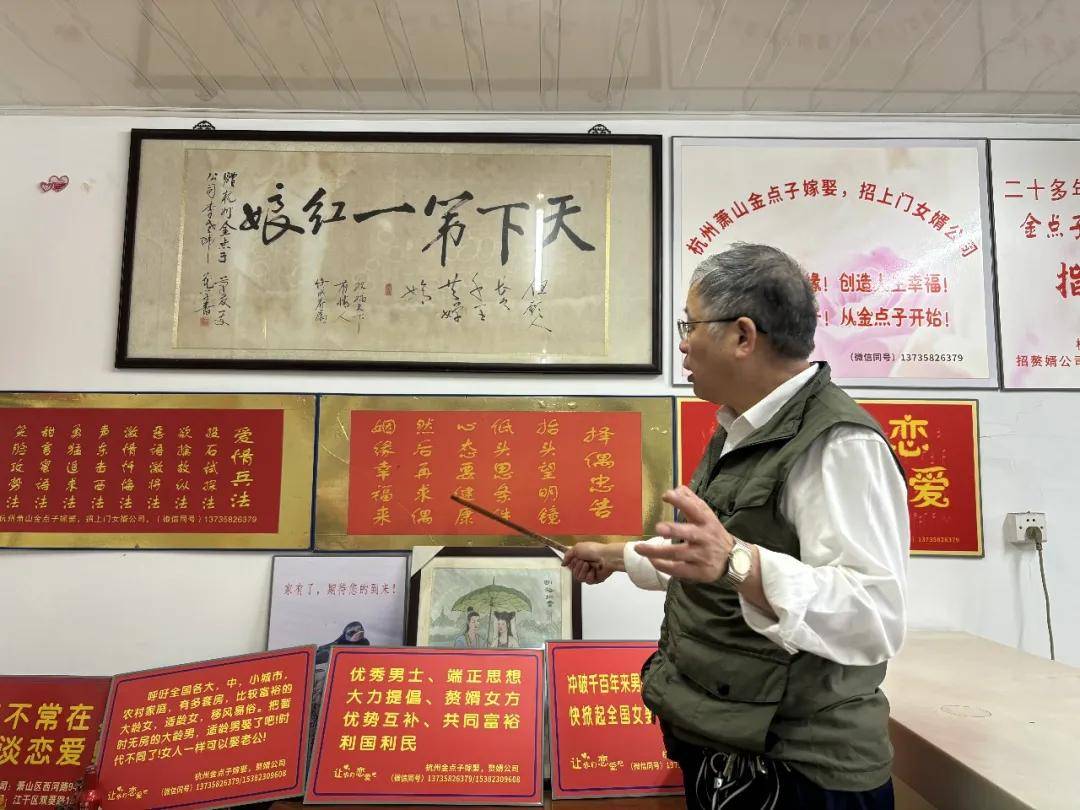 天下第一红娘
但愿人
长久
千里
共婵
娟
祝福天下
有情人
终成眷属
赠杭州金点子
杭州萧山金点子嫁娶，招上门女婿公司
缘！创造人生幸福！
！从金点子开始！
（微信同号）13735826379
二十多年
金点子
指
招赘婿公司
爱情兵法
投石试探法
欲擒故纵法
恶语激将法
激情忏悔法
声东击西法
勇猛追求法
甜言蜜语法
笑脸攻势法
杭州萧山金点子嫁娶，招上门女婿公司。（微信同号）13735826379
择偶忠告
抬头望明镜
低头思条件
心态要健康
然后再求偶
姻缘幸福来
恋
爱
家有了，期待您的到来！
不常在
谈恋爱
萧山区西河路
呼吁全国各大，中，小城市，
农村家庭，有多套房，比较富裕的
大龄女，适龄女，移风易俗。把暂
时无房的大龄男，适龄男娶了吧!时
代不同了!女人一样可以娶老公!
杭州金点子嫁娶，赘婿公司
让我们恋爱吧
（微信同号）13735826379/15382309608
优秀男士、端正思想
大力提倡、赘婿女方
优势互补、共同富裕
利国利民
杭州金点子嫁娶，赘婿公司
让我们恋爱吧
（微信同号）13735826379/15382309608
冲破千百年来男
快掀起全国女
杭州金点子嫁娶
让我们恋爱吧
（微信同号）13735826379